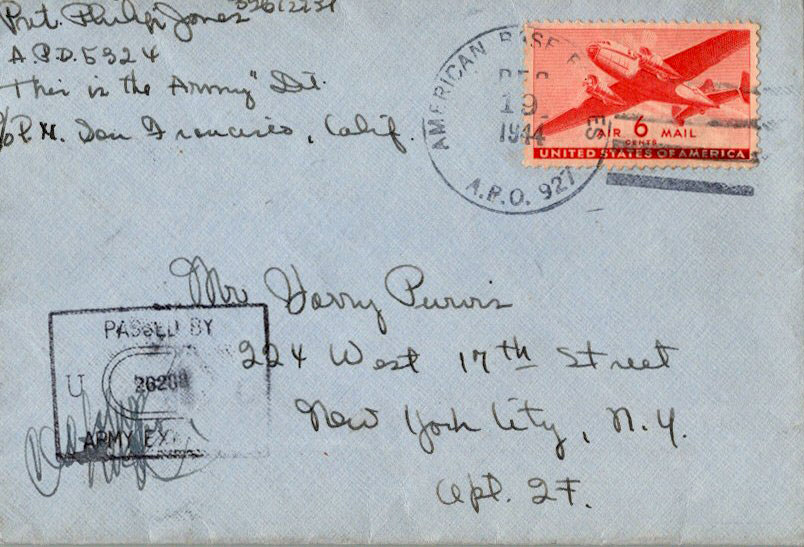 Pvt. Philip Jones
A.P.O. 5324
"This is the Army" Det.
c/o P.M. San Francisco, Calif.
AMERICAN BASE
DEC
19
1944
A.P.O. 927
AIR 6 MAIL
CENTS
UNITED STATES OF AMERICA
Mr Harry Purvis
224 West 17th Street
New York City, N.Y.
Apt. 2F.
PASSED BY
U
ARMY